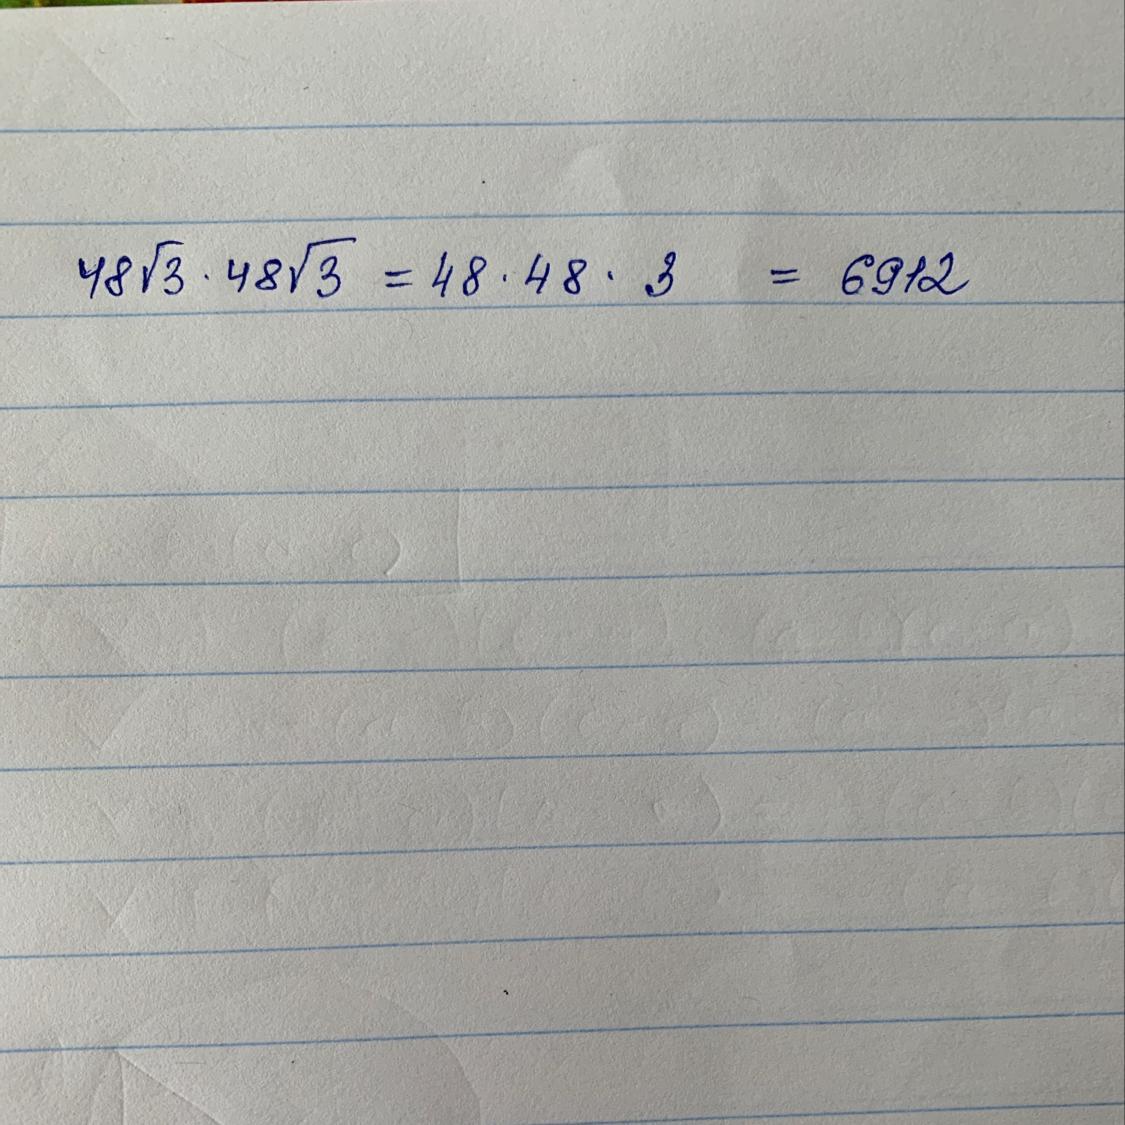 48√3 · 48√3 = 48 · 48 · 3 = 6912